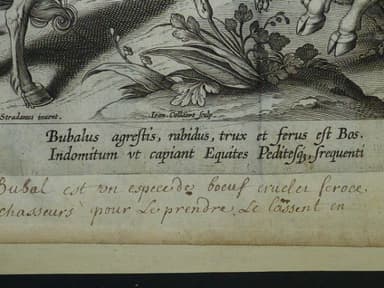 Stradanus invent.
Ioan. Collaert sculp.
Bubalus agrestis, rabidus, trux et ferus est Bos.
Indomitum vt capiant Equites Peditesq, frequenti
Bubal est un espece des boeuf cruel et feroce
chasseurs pour Le prendre Le lassent en